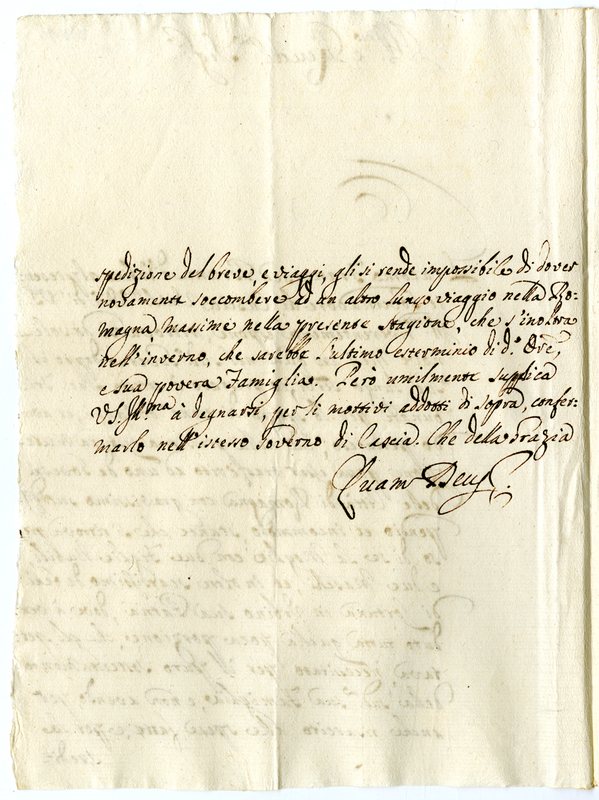 spedizione del breve e viaggi, gli si rende impossibile di dover
novamente soccombere ad un altro lungo viaggio nella Ro-
magna, massime nella presente stagione, che s'inoltra
nell'inverno, che sarebbe l'ultimo esterminio di d.º Ore,
e sua povera Famiglia. Però umilmente supplica
VS. Ill.ma à degnarsi, per li mottivi addotti di sopra, confer-
marlo nell'istesso Governo di Cascia. Che della Grazia
Quam Deus.